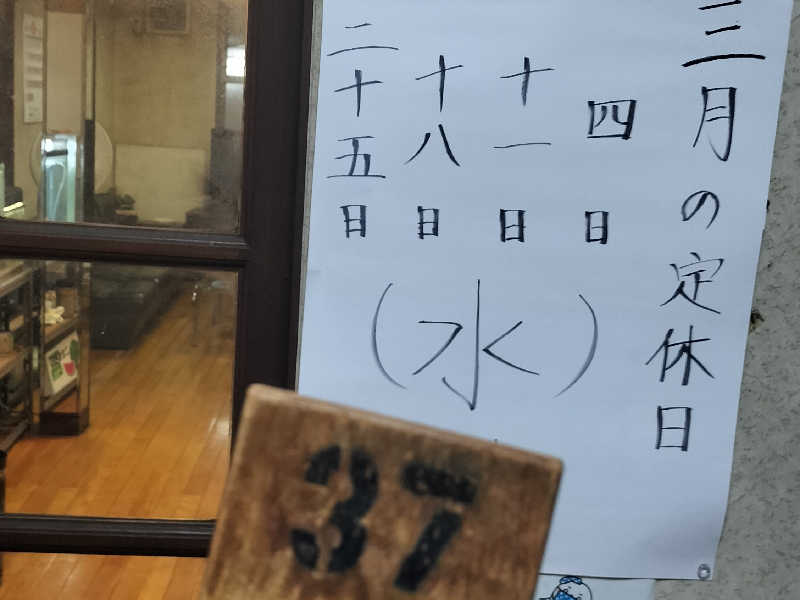 三月の定休日
四日
十一日
十八日
二十五日
（水）
37